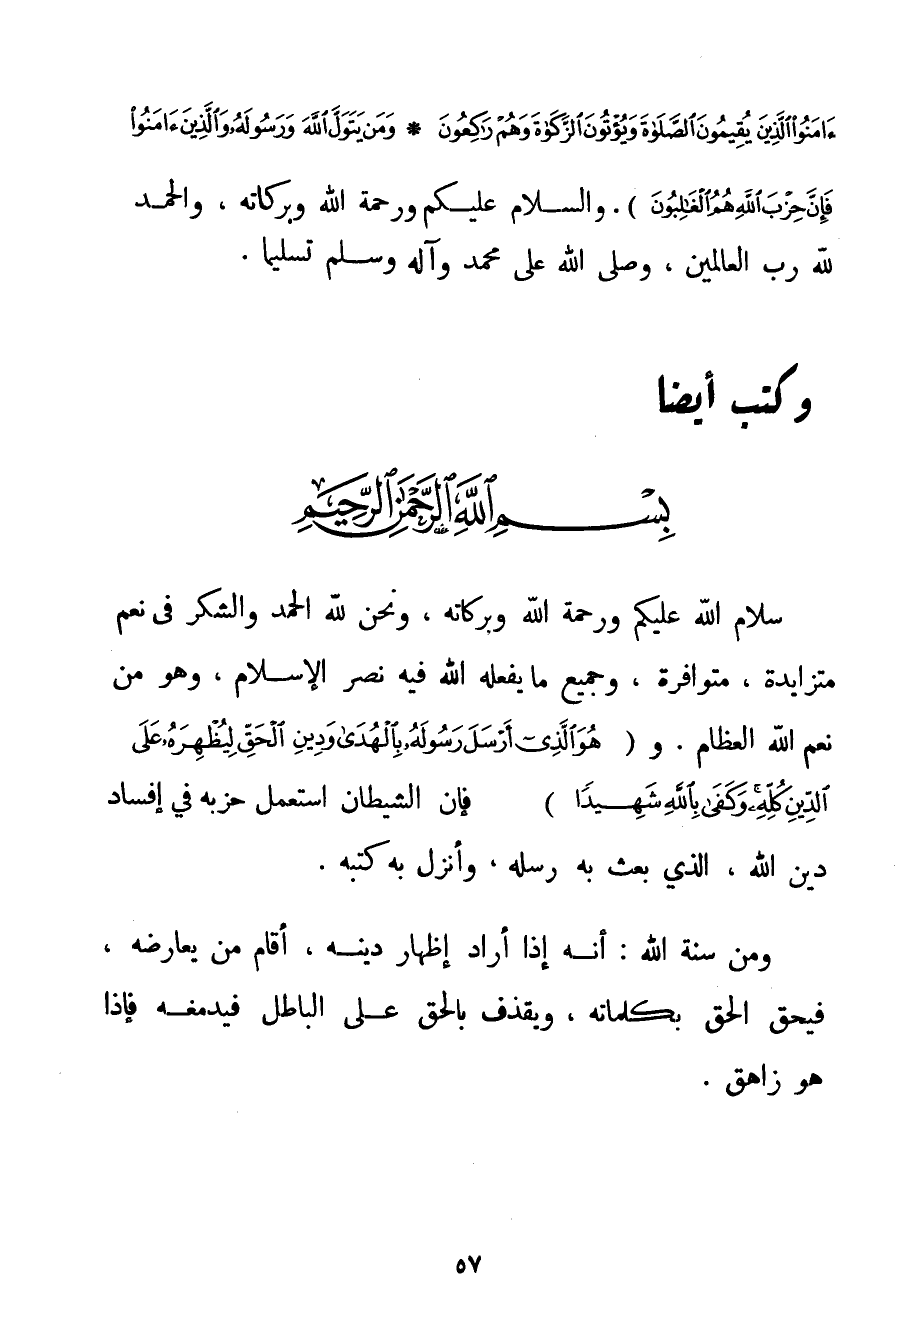 ءَامَنُوا۟ ٱلَّذِينَ يُقِيمُونَ ٱلصَّلَوٰةَ وَيُؤْتُونَ ٱلزَّكَوٰةَ وَهُمْ رَٰكِعُونَ * وَمَن يَتَوَلَّ ٱللَّهَ وَرَسُولَهُۥ وَٱلَّذِينَ ءَامَنُوا۟
فَإِنَّ حِزْبَ ٱللَّهِ هُمُ ٱلْغَٰلِبُونَ ) . والسلام عليكم ورحمة الله وبركاته ، والحمد
لله رب العالمين ، وصلى الله على محمد وآله وسلم تسليما .
وكتب أيضا
بِسْمِ ٱللَّهِ ٱلرَّحْمَٰنِ ٱلرَّحِيمِ
سلام الله عليكم ورحمة الله وبركاته ، ونحن لله الحمد والشكر فى نعم
متزايدة ، متوافرة ، وجميع ما يفعله الله فيه نصر الإسلام ، وهو من
نعم الله العظام . و ( هُوَ ٱلَّذِىٓ أَرْسَلَ رَسُولَهُۥ بِٱلْهُدَىٰ وَدِينِ ٱلْحَقِّ لِيُظْهِرَهُۥ عَلَى
ٱلدِّينِ كُلِّهِۦ ۚ وَكَفَىٰ بِٱللَّهِ شَهِيدًا ) فإن الشيطان استعمل حزبه في إفساد
دين الله ، الذي بعث به رسله ، وأنزل به كتبه .
ومن سنة الله : أنه إذا أراد إظهار دينه ، أقام من يعارضه ،
فيحق الحق بكلماته ، ويقذف بالحق على الباطل فيدمغه فإذا
هو زاهق .
٥٧